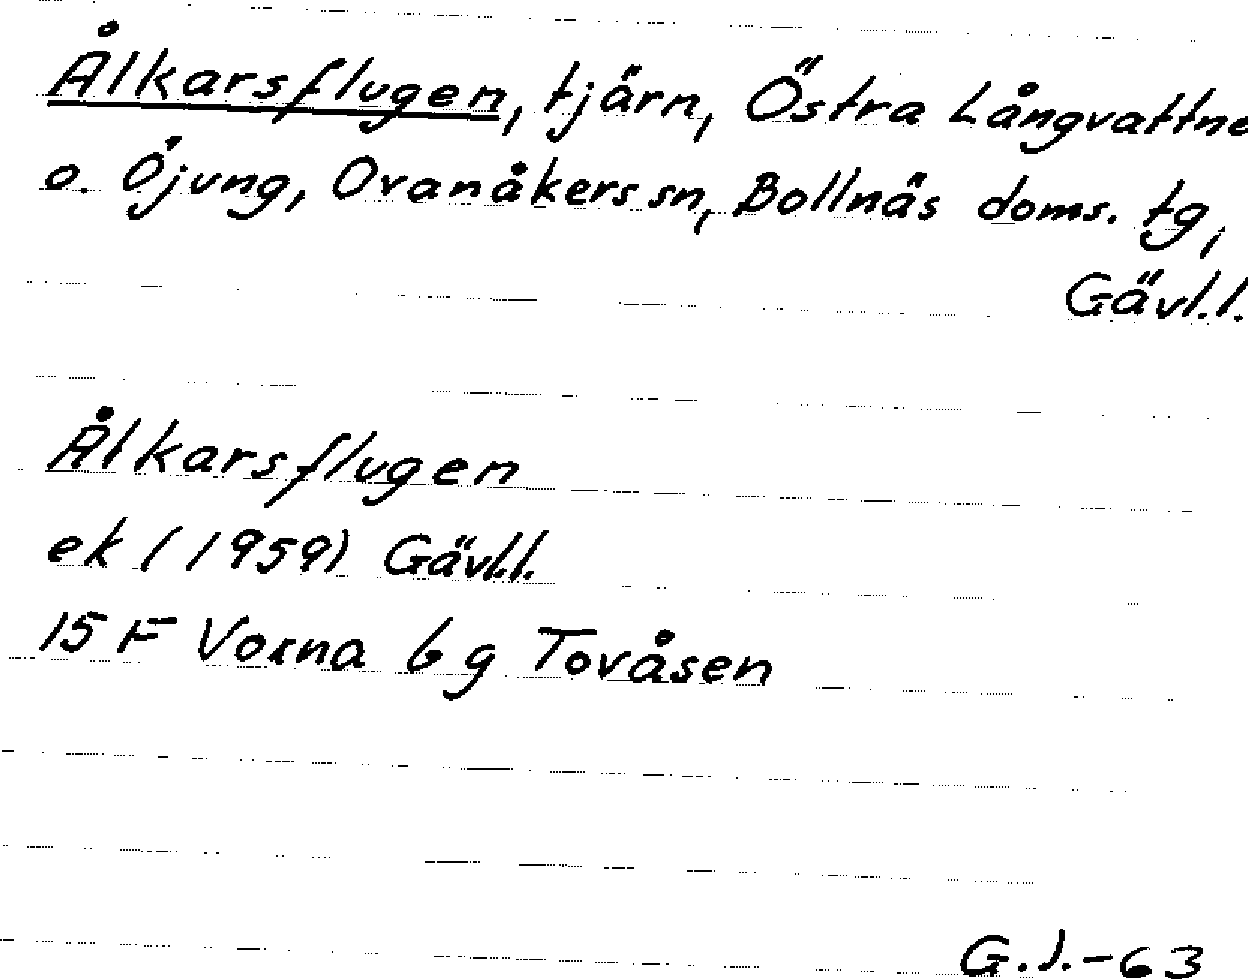 Ålkarsflugen, tjärn, Östra Långvattne
o. Öjung, Ovanåkers sn, Bollnäs doms. tg,
Gävl.l.
Ålkarsflugen
ek (1959) Gävl.l.
15 F Voxna 6 g Tovåsen
G.J.-63